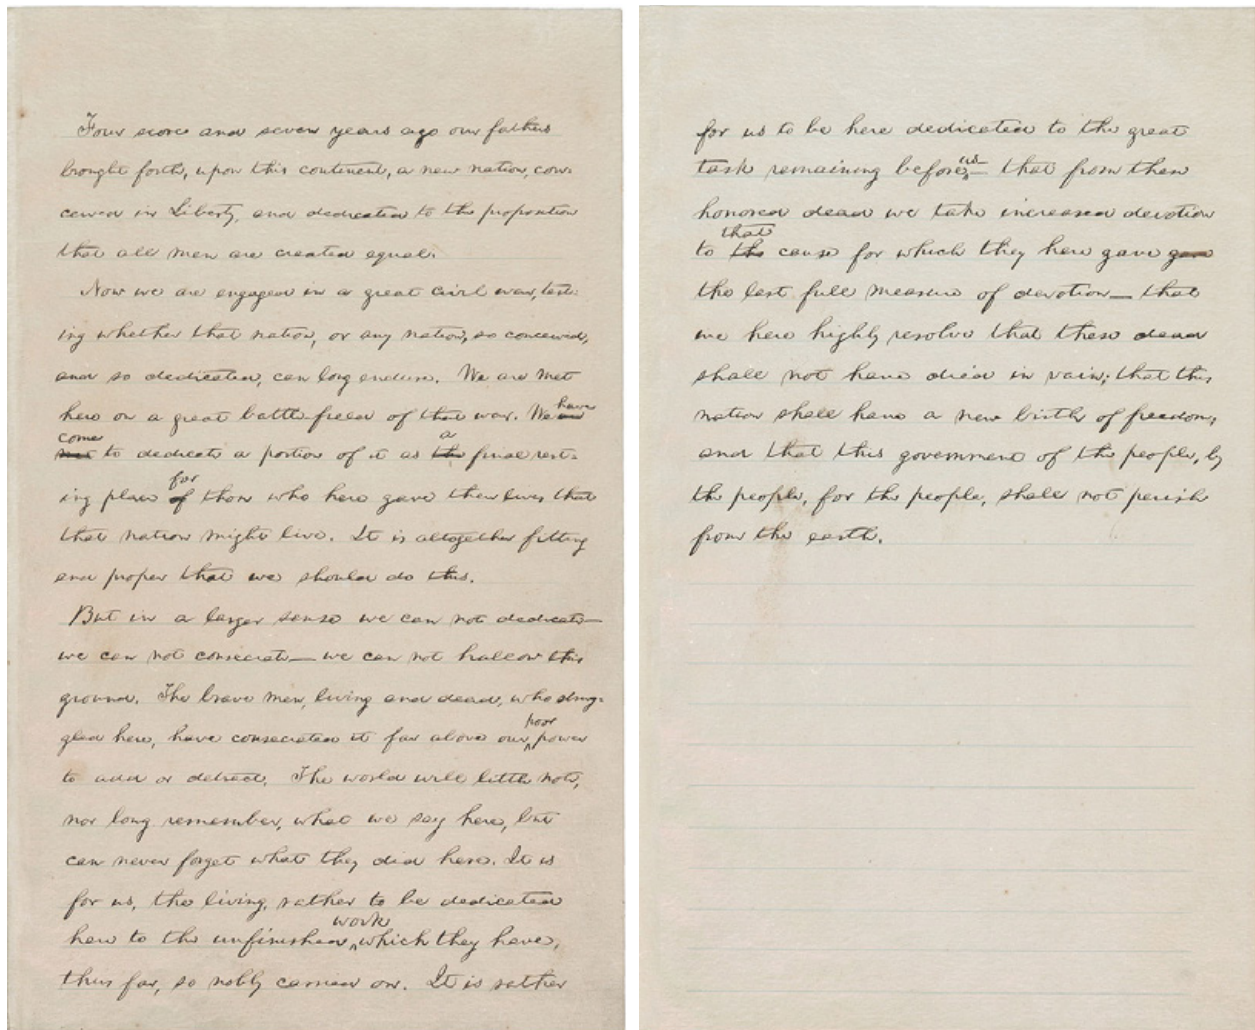 Four score and seven years ago our fathers
brought forth, upon this continent, a new nation, con-
ceived in Liberty, and dedicated to the proposition
that all men are created equal.
Now we are engaged in a great civil war, test-
ing whether that nation, or any nation, so conceived,
and so dedicated, can long endure. We are met
here on a great battle-field of that war. We have
come
to dedicate a portion of it as a the final rest-
ing place for of those who here gave their lives that
that nation might live. It is altogether fitting
and proper that we should do this.
But in a larger sense we can not dedicate—
we can not consecrate—we can not hallow this
ground. The brave men, living and dead, who strug-
gled here, have consecrated it far above our poor power
to add or detract. The world will little note,
nor long remember, what we say here, but
can never forget what they did here. It is
for us, the living, rather to be dedicated
here to the unfinished work which they have,
thus far, so nobly carried on. It is rather
for us to be here dedicated to the great
task remaining before us— that from these
honored dead we take increased devotion
that
to the cause for which they here gave gave
the last full measure of devotion—that
we here highly resolve that these dead
shall not have died in vain; that this
nation shall have a new birth of freedom;
and that this government of the people, by
the people, for the people, shall not perish
from the earth.